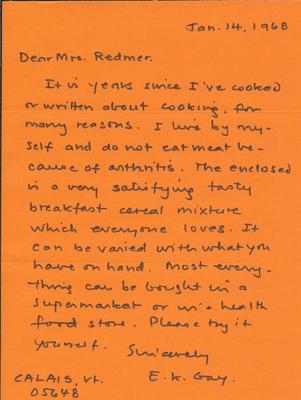 Jan. 14, 1968
Dear Mrs. Redmer.
It is years since I've cooked
or written about cooking, for
many reasons. I live by my-
self and do not eat meat be-
cause of arthritis. The enclosed
is a very satisfying tasty
breakfast cereal mixture
which everyone loves. It
can be varied with what you
have on hand. Most every-
thing can be bought in a
supermarket or in a health
food store. Please try it
yourself.
Sincerely
E. K. Gay.
CALAIS, Vt.
05648